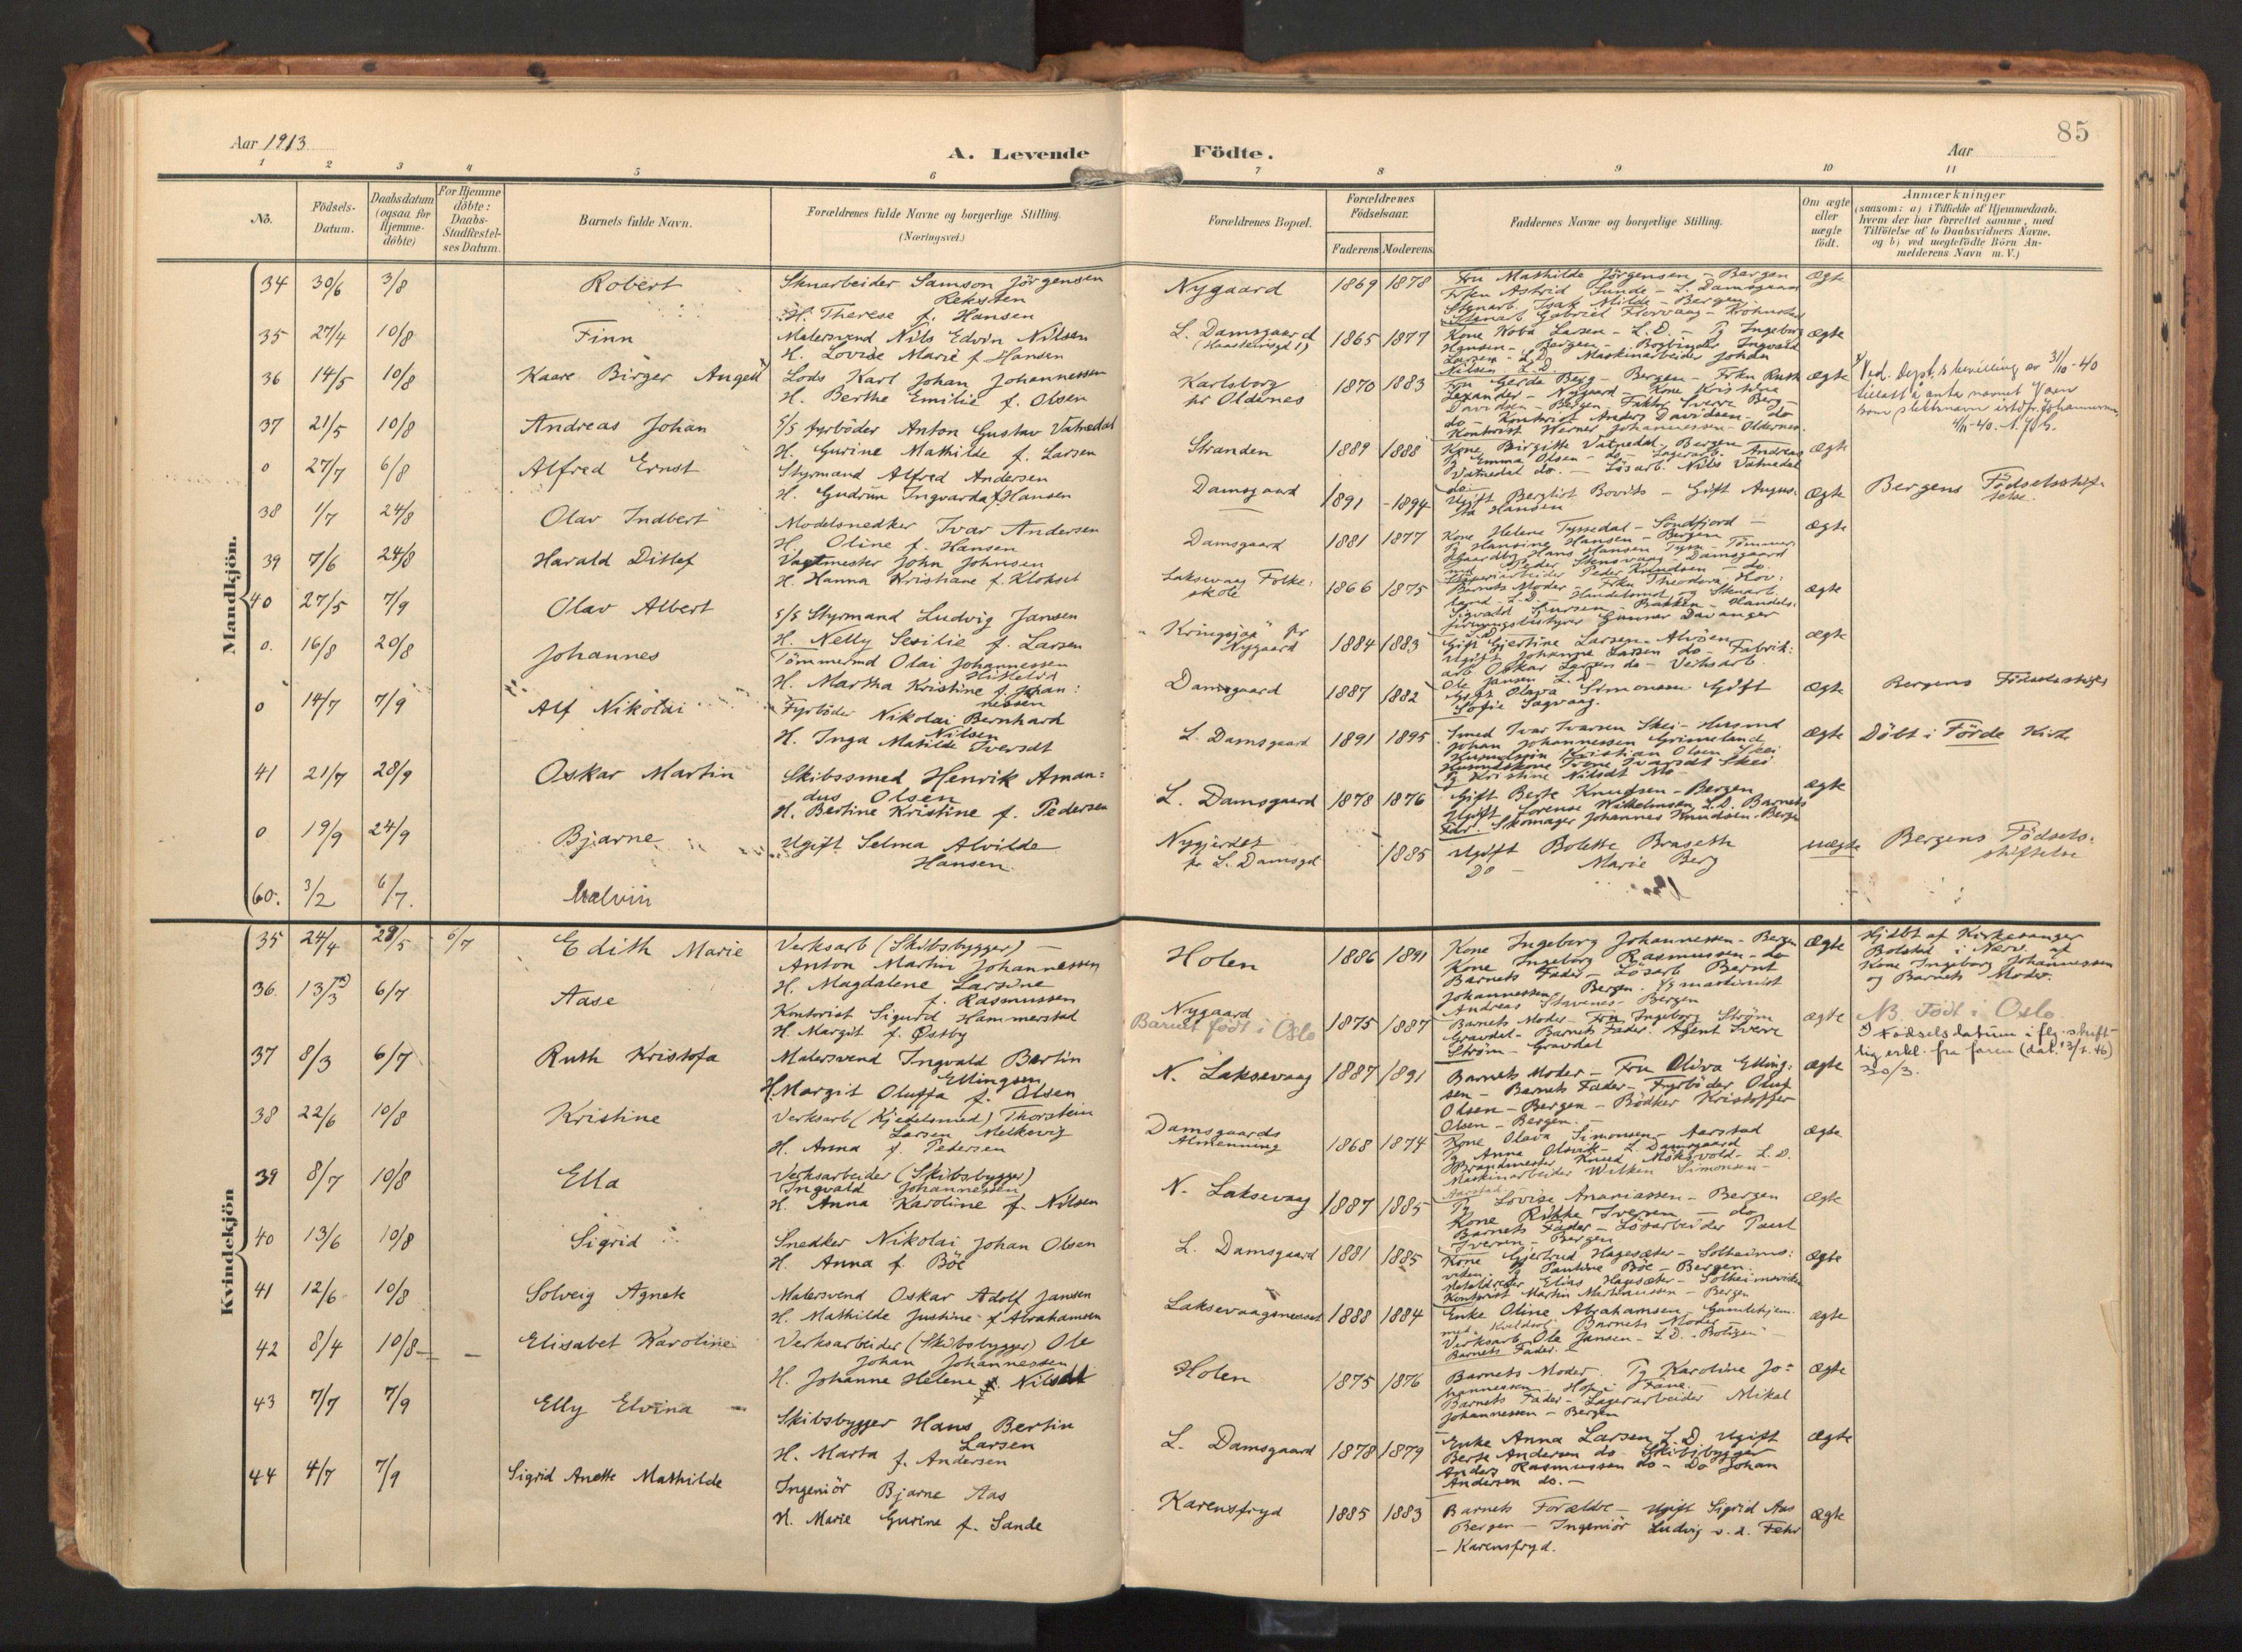 85
Aar 1913
A. Levende Födte.
Aar
1 2 3 4 5 6 7 8 9 10 11
No.
Födsels-
Datum.
Daabsdatum
(ogsaa for
Hjemme-
döbte)
For Hjemme
döbte:
Daabs-
Stadfæstel-
ses Datum.
Barnets fulde Navn.
Forældrenes fulde Navne og borgerlige Stilling.
(Næringsvei.)
Forældrenes Bopæl.
Forældrenes
Födselsaar.
Faderens Moderens
Faddernes Navne og borgerlige Stilling.
Om ægte
eller
uægte
födt.
Anmærkninger
(saasom: a) i Tilfælde af Hjemmedaab,
hvem der har forrettet samme, med
Tilföielse af to Daabsvidners Navne,
og b) ved uegtefödte Börn An-
melderens Navn m. V.)
Mandkjön.
34 30/6 3/8 Robert
Stenarbeider Samson Jörgensen
Reksten
H. Therese f. Hansen
Nygaard 1869 1878
Fru Mathilde Jörgensen - Bergen
Frkn Astrid Sunde - L. Damsgaard
Stenarb. Isak Milde - Bergen
Stenarb Gabriel
ægte
35 27/4 10/8 Finn
Malersvend Nils Edvin Nilsen
H. Lovise Marie f. Hansen
L. Damsgaard
1865 1877
Larsen - L.D. - Pg Ingeborg
Hansen - Bergen - Bogbinder Ingvald
Larsen - L.D. Maskinarbeider Johan
Nilsen L.D.
ægte
36 14/5 10/8 Kaare Birger Angell
Lods Karl Johan Johannessen
H. Berthe Emilie f. Olsen
Karlsborg
pr Oldernes
1870 1883
Fru Gerda Berg - Bergen - Frkn Ruth
Lexander - Nygaard - Kone Kristine
Davidsen - Bergen - Faktor Sverre Berg -
do - Kontorist Anders Davidsen - do
Kontorist Werner Johannessen - Oldernes.
ægte
Ved. Dept.s bevilling av 31/10-40
tillatt å anta navnet
som slektsnavn istdf. Johannessen,
4/11-40.
37 21/5 10/8 Andreas Johan
S/S fyrböder Anton Gustav Vatnedal
H. Gurine Mathilde f. Larsen
Stranden 1889 1888
Kone Birgitte Vatnedal - Bergen
Pg Emma Olsen - do - Lagerarb. Andreas
Vatnedal do. - Lösarb. Nils Vatnedal
do -
ægte
0 27/7 6/8 Alfred Ernst
Styrmand Alfred Andersen
H. Gudrun Ingvarda f. Hansen
Damsgaard 1891 - 1894
Ugift Bergliot Bovits - Gift Augus-
ta Hansen
ægte
Bergens Födselsstif-
telse.
38 1/7 24/8 Olav Indbert
Modelsnedker Ivar Andersen
H. Oline f. Hansen
Damsgaard 1881 1877
Kone Helene Tyssedal - Söndfjord -
Pg Hansine Hansen - Bergen
Gaardbr. Hans Hansen Tysse - Tömmer-
md Peder Stensvaag - Damsgaard
Peder Knudsen - do.
ægte
39 7/6 24/8 Harald Ditlef
Vagtmester John Johnsen
H. Hanna Kristiane f. Klokset
Laksevaag Folke-
skole
1866 1875
Barnets Moder - Frkn Theodora Hov-
land - L.D. - Handelsmd og Stenarb.
Sigvald - Bakken - Handels-
foreningsbestyrer Gunnar Davanger
L.D.
ægte
40 27/5 7/9 Olav Albert
S/S Styrmand Ludvig Jansen
H. Nelly Sesilie f. Larsen
"Kringsjaa" pr
Nygaard
1884 1883
Gift Gjertine Larsen - Alvöen
Ugift Johanne Larsen do - Fabrik-
arb Oskar Larsen do - Verksarb.
Ole Jansen L.D.
ægte
0. 16/8 20/8 Johannes
Tömmermd Olai Johannessen
H. Martha Kristine f. Johan-
nessen
Damsgaard 1887 1882
Gift Olava Simonsen Gift
Sofie Sagvaag.
ægte
Bergens Födselsstiftelse
0 14/7 7/9 Alf Nikolai
Fyrböder Nikolai Bernhard
Nilsen
H. Inga Matilde Iversdt
L. Damsgaard 1891 1895
Smed Ivar Ivarsen Skei - Husmd
Johan Johannessen Grimeland
Kristian Olsen Skei
Husmdskone Ivarsdt Skei
Pg Kristine Nilsdt Mo
ægte
Döbt i Förde Kirke
41 21/7 28/9 Oskar Martin
Skibssmed Henrik Aman-
dus Olsen
H. Bertine Kristine f. Pedersen
L. Damsgaard 1878 1876
Gift Berte Knudsen - Bergen
Ugift Lorense Wilhelmsen L.D. Barnets
Far. Skomager Johannes Knudsen - Bergen
ægte
0 19/9 24/9 Bjarne
Ugift Selma Alvilde
Hansen
Nygjerdet
pr L. Damsgd
1885
Ugift Bolette Braseth
Do - Marie Berg
uægte
Bergens Födsels-
stiftelse
60. 3/2 6/7. Malvin
Kvindekjön
35 24/4 28/5 6/7 Edith Marie
Verksarb (Skibsbygger) -
Anton Martin Johannessen
H. Magdalene Larsine
f. Rasmussen
Holen 1886 1891
Kone Ingeborg Johannessen - Bergen
Kone Ingeborg Rasmussen - do
Barnets Fader - Lösarb Bernt
Johannessen - Bergen. S/S maskinist
Andreas Stavenes - Bergen
ægte
Hjdbt af Kirkesanger
Bolstad i Nærv. af
Kone Ingeborg Johannessen
og Barnets Moder.
36. 13/3 6/7 Aase
Kontorist Sigurd Hammerstad
H. Margit f. Østby
Nygaard
Barnet født i Oslo
1875 1887
Barnets Moder - Fru Ingeborg Ström
Gravdal - Barnets Fader. Agent Sverre
Ström - Gravdal
ægte
NB. Født i Oslo
Fødselsdatum iflg. skrift-
lig erkl. fra faren (dat. 13/2. 46)
30/3.
37 8/3 6/7 Ruth Kristofa
Malersvend Ingvald Bertin
Ellingsen
H. Margit Oluffa f. Olsen
N. Laksevaag 1887 1891
Barnets Moder - Fru Oliva Elling-
sen - Barnets Fader - Fyrböder Oluf
Olsen - Bergen - Bödker Kristoffer
Olsen - Bergen. -
ægte
38 22/6 10/8 Kristine
Verksarb (Kjedelsmed) Thorstein
Larsen Melkevig
H. Anna f. Pedersen
Damsgaards
Almenning
1868 1874
Kone Olava Simonsen - Aarstad
Pg Anna Olsvik - L. Damsgaard
Brandmester Knud Moksvold - L.D.
Maskinarbeider Wilken Simonsen -
Aarstad. -
ægte
39 8/7 10/8 Ella
Verksarbeider (Skibsbygger)
Ingvald Johannessen
H. Anna Karoline f. Nilsen
N. Laksevaag 1887 1885
Pg Lovise Ananiassen - Bergen
Kone Rikke Iversen - do
Barnets Fader - Lösarbeider Paul
Iversen - Bergen
ægte
40 13/6 10/8 Sigrid
Snedker Nikolai Johan Olsen
H. Anna f. Böe
L. Damsgaard 1881 1885
Kone Gjertrud Hagesæter - Solheims-
viken. Pg Pauline Böe - Bergen.
Elias Hagesæter - Solheimsviken
Kontorist Martin Martinussen - Bergen
ægte
41 12/6 10/8 Solveig Agnete
Malersvend Oskar Adolf Jansen
H. Mathilde Justine f Abrahamsen
Laksevaagsnesset 1888 1884
Enke Oline Abrahamsen, Gamlehjem-
met Barnets Moder -
Verksarb. Ole Jansen - L.D.
Barnets Fader. -
ægte
42 8/4 10/8 - Elisabet Karoline
Verksarbeider (Skibsbygger) Ole
Johan Johannessen
H. Johanne Helene f. Nilsdt
Holen 1875 1876
Barnets Moder. Pg Karoline Jo-
hannessen - Hop i Fane. -
Barnets Fader - Lagerarbeider Mikal
Johannessen - Bergen
ægte
43 7/7 7/9 Elly Elvina -
Skibsbygger Hans Bertin
Larsen
H. Marta f. Andersen
L. Damsgaard 1878 1879
Enke Anna Larsen L.D. Ugift
Berte Andersen do - Skibsbygger
Anders Rasmussen do - Do Johan
Andersen do. -
ægte
44 4/7 7/9 Sigrid Anette Mathilde
Ingeniör Bjarne Aas
H. Marie Gurine f. Sande
Karensfryd 1885 1883
Barnets Forældre - Ugift Sigrid Aas
Bergen - Ingeniör Ludvig v. d. Fehr
- Karensfryd.
ægte